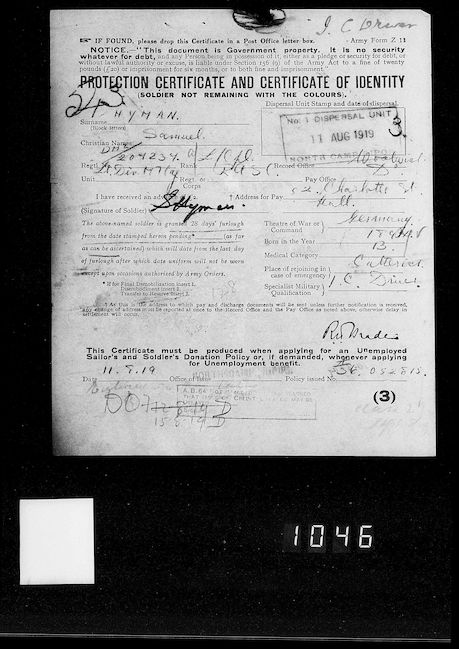 I. C Driver
IF FOUND, please drop this Certificate in a Post Office letter box. Army Form Z 11
NOTICE.—"This document is Government property. It is no security
whatever for debt, and any Person being in possession of it, either as a pledge or security for debt,
without lawful authority or excuse, is liable under Section 156 (9) of the Army Act to a fine of twenty
pounds (£20) or imprisonment for six months, or to both fine and imprisonment."
PROTECTION CERTIFICATE AND CERTIFICATE OF IDENTITY
(SOLDIER NOT REMAINING WITH THE COLOURS).
Dispersal Unit Stamp and date of dispersal
No. 1 DISPERSAL UNIT
11 AUG 1919
3.
Surname HYMAN.
(Block letters)
Christian Names Samuel
Regtl. No. DM2/204234 Rank Record Office Woolwich
Unit Regt. or Corps Pay Office
I have received an advance Address for Pay Charlotte St
Hull.
(Signature of Soldier) S Hyman
The above-named soldier is granted 28 days' furlough
from the date stamped hereon pending (as far
as can be ascertained) which will date from the last day
of furlough after which date uniform will not be worn
except upon occasions authorised by Army Orders.
Theatre of War or Command Germany
Born in the Year 1894
Medical Category B
Place of rejoining in case of emergency Catterick
Specialist Military Qualification I. C. Driver
* If for Final Demobilization insert 1.
Disembodiment insert 2.
Transfer to Reserve insert 3.
† As this is the address to which pay and discharge documents will be sent unless further notification is received,
any change of address must be reported at once to the Record Office and the Pay Office as noted above, otherwise delay in
settlement will occur.
This Certificate must be produced when applying for an Unemployed
Sailor's and Soldier's Donation Policy or, if demanded, whenever applying
for Unemployment benefit.
Date 11.8.19 Office of Issue Policy issued No. 052815.
(3)
15.8.19
1046